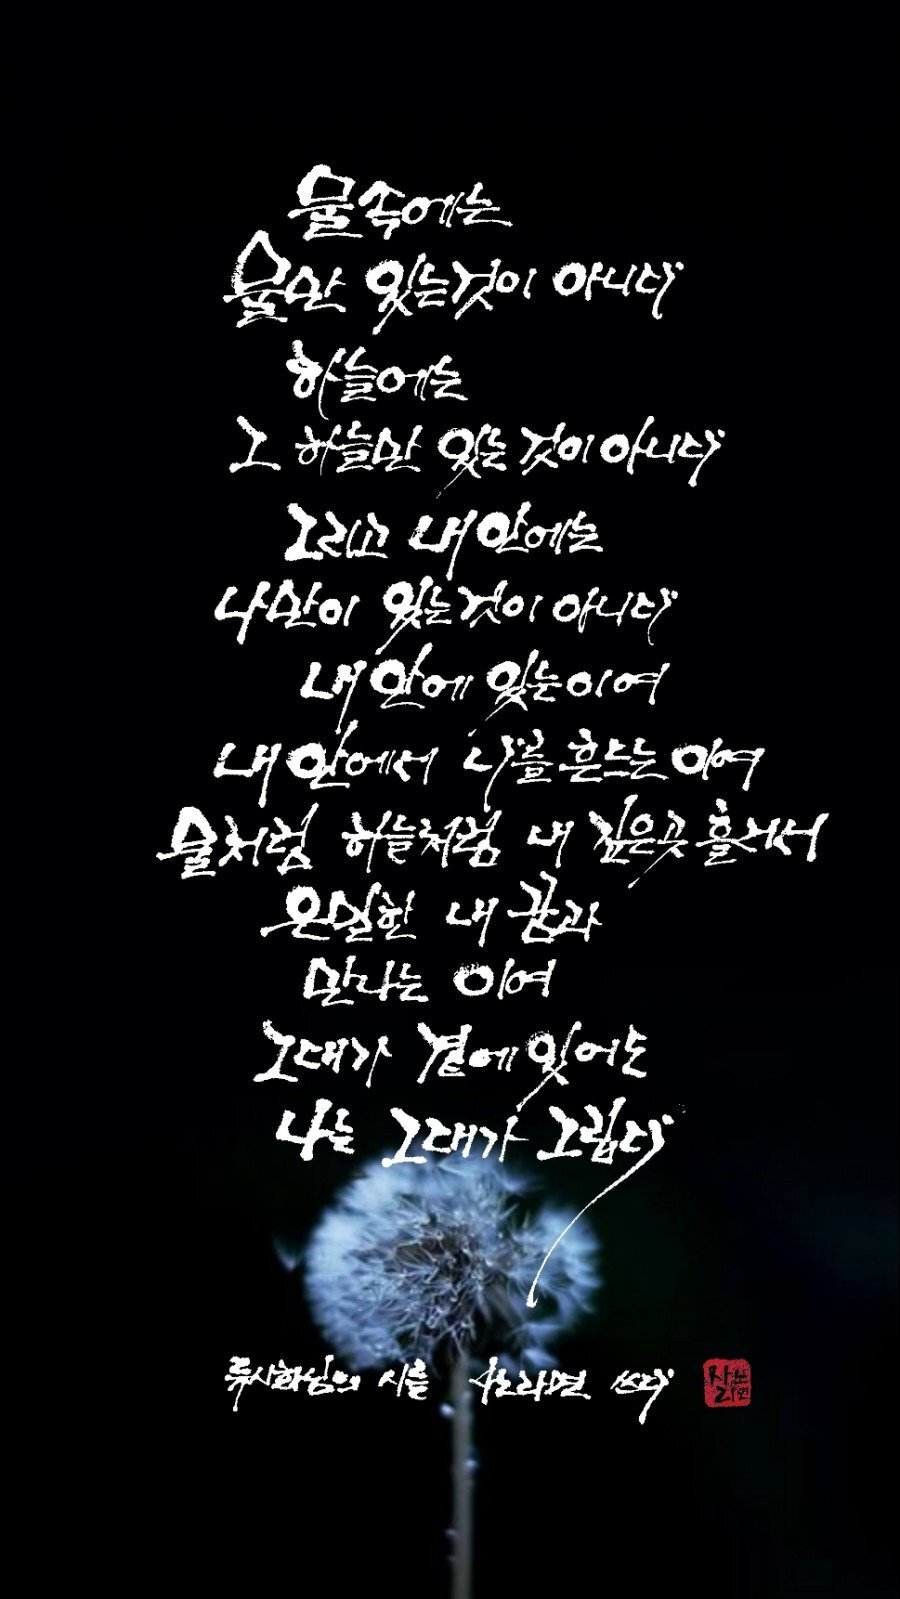 물속에는
물만 있는것이 아니다
하늘에는
그 하늘만 있는것이 아니다
그리고 내안에는
나만이 있는것이 아니다
내안에 있는이여
내안에서 나를 흔드는 이여
물처럼 하늘처럼 내 깊은곳 흘러서
은밀한 내 꿈과
만나는 이여
그대가 곁에 있어도
나는 그대가 그립다
류시화님의 시를 쓰다